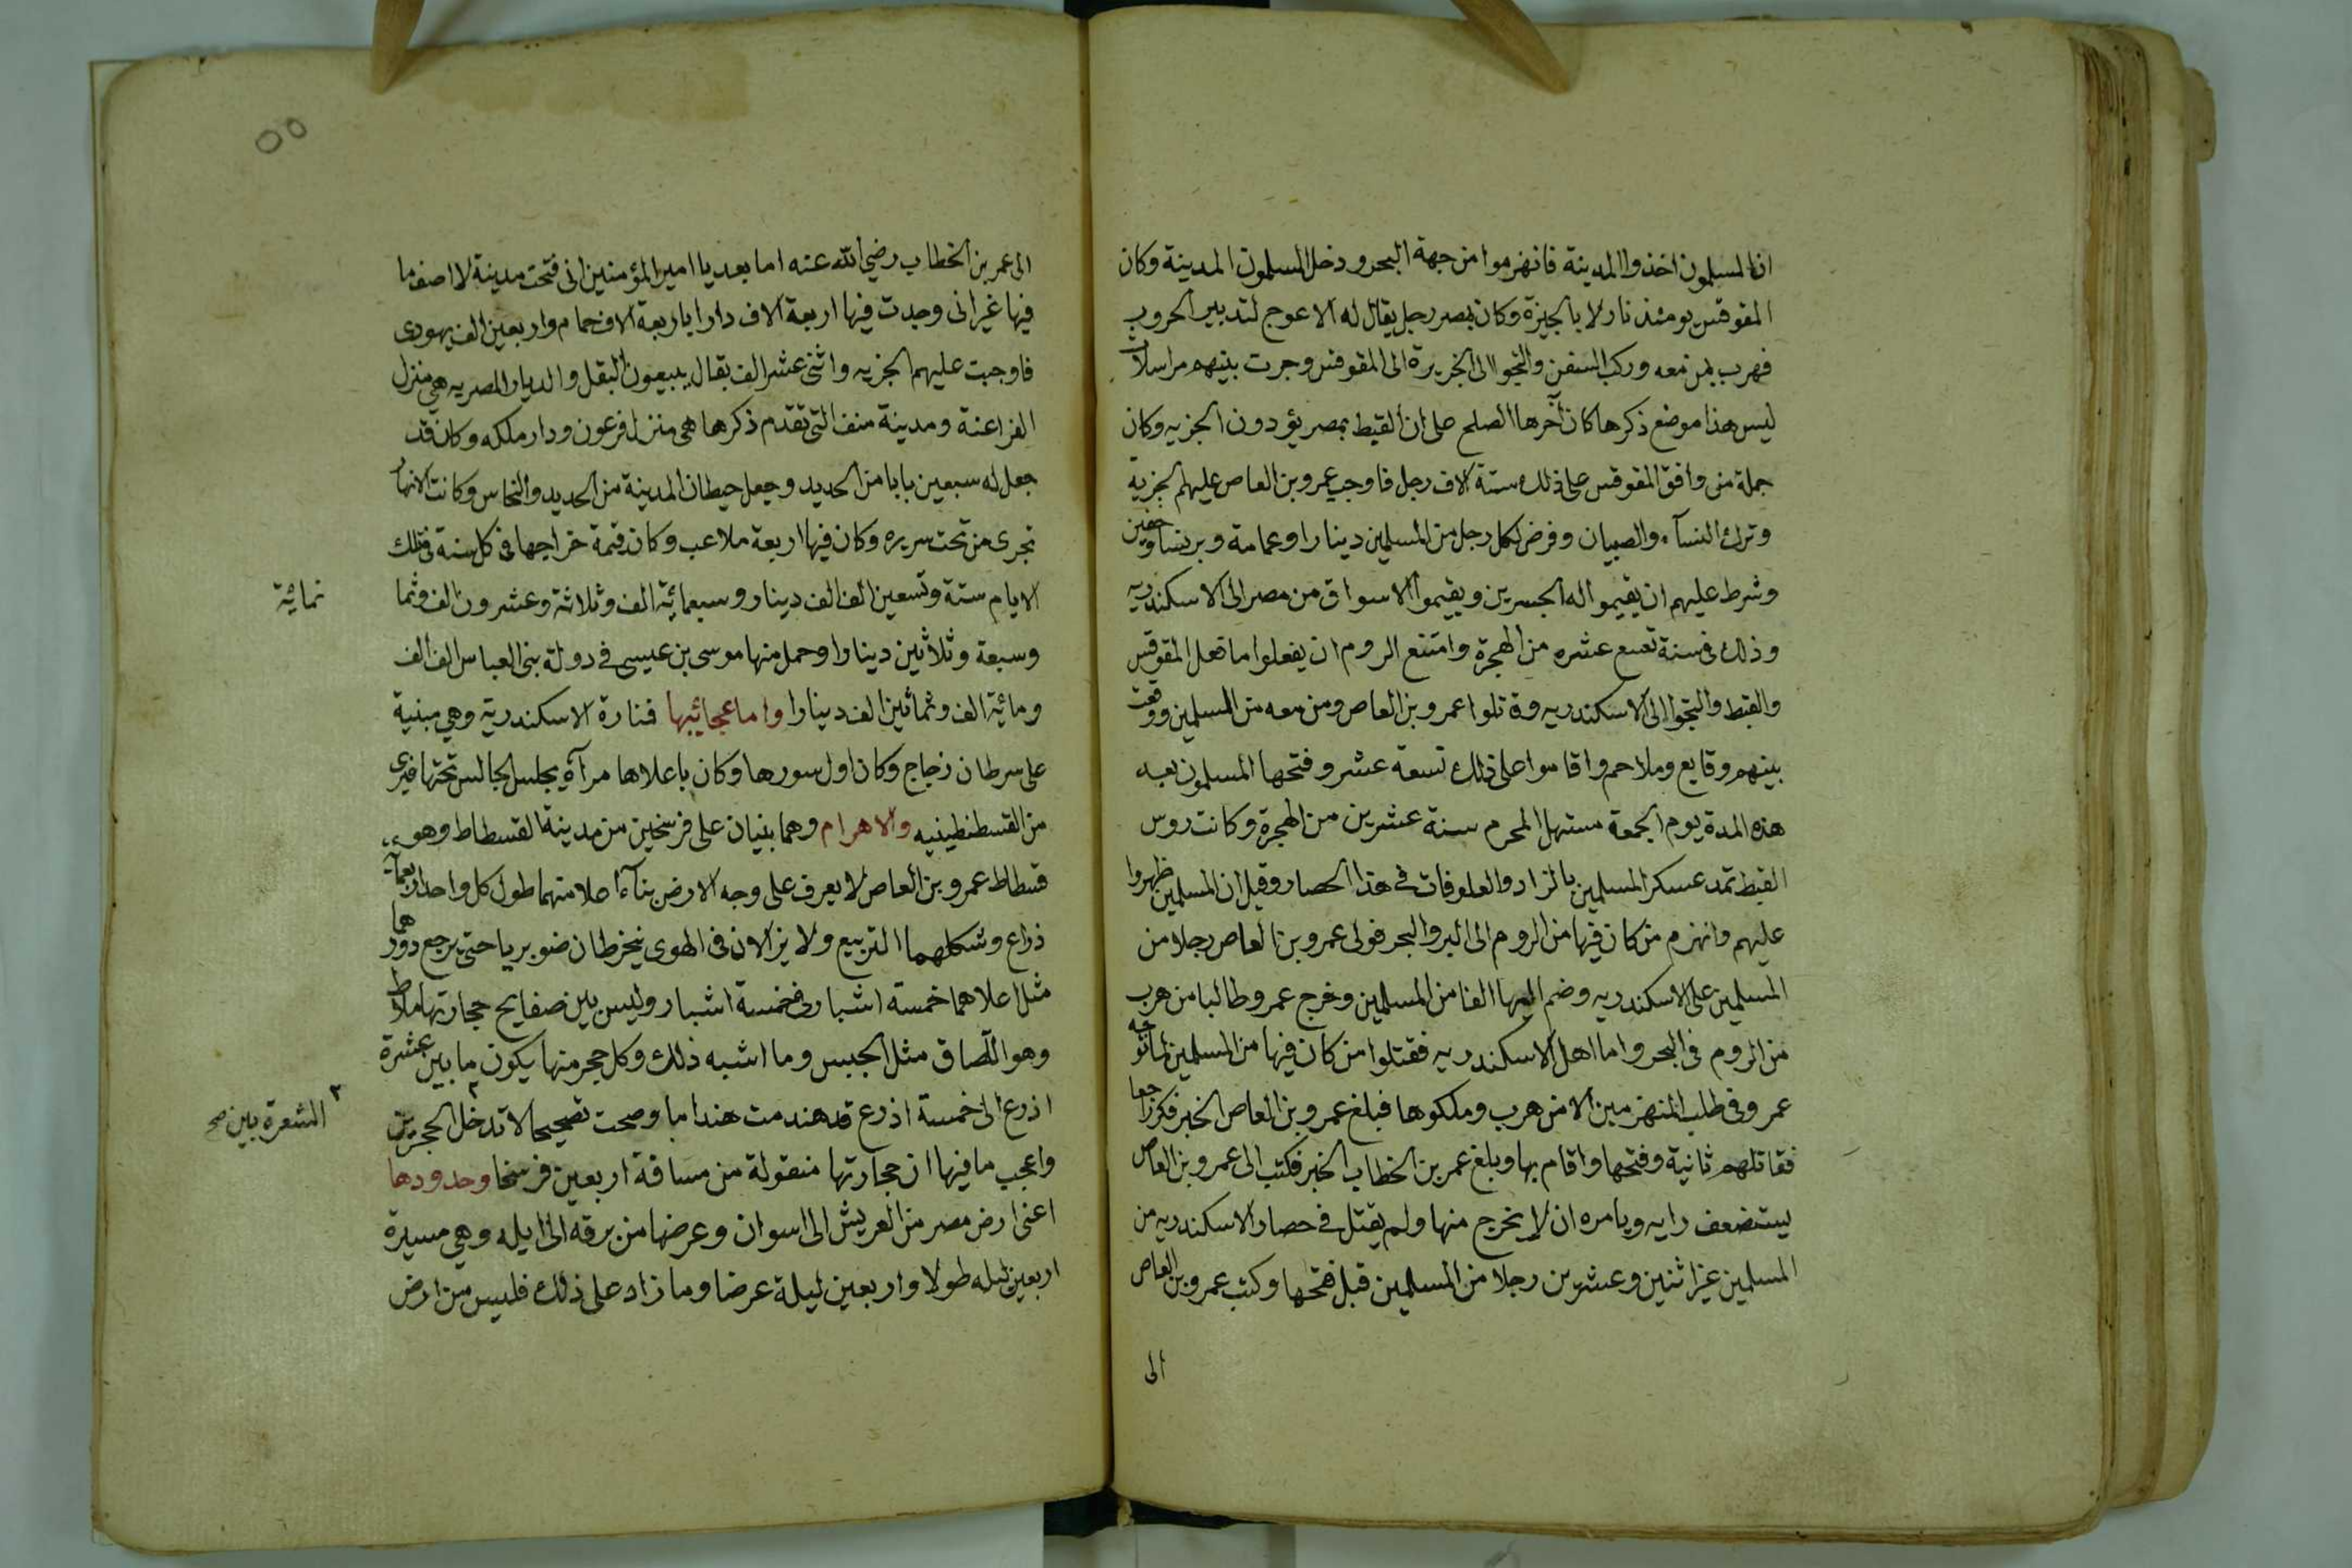 ان المسلمون اخذوا المدينة فانهزموا من جهة البحر ودخل المسلمون المدينة وكان
المقوقس يومئذ نازلا بالجيزة وكان بمصر رجل يقال له الاعوج لتدبير الحروب
فهرب بمن معه وركب السفن والتجوا الى الجزيرة الى المقوقس وجرت بينهم مراسلات
ليس هذا موضع ذكرها كان آخرها الصلح على ان القبط بمصر يؤدون الجزيه وكان
جملة من وافق المقوقس على ذلك ستة الاف رجل فاوجب عمرو بن العاص عليهم الجزية
وترك النسآء والصبيان وفرض لكل رجل من المسلمين دينارا وعمامة وبرنسا وخفين
وشرط عليهم ان يقيموا له الجسرين ويقيموا الاسواق من مصر الى الاسكندريه
وذلك فى سنة تسع عشره من الهجرة وامتنع الروم ان يفعلوا ما فعل المقوقس
والقبط والتجوا الى الاسكندريه وقاتلوا عمرو بن العاص ومن معه من المسلمين ووقعت
بينهم وقايع وملاحم واقاموا على ذلك تسعة عشر وفتحها المسلمون بعد
هذه المدة يوم الجمعة مستهل المحرم سنة عشرين من الهجرة وكانت روس
القبط تمد عسكر المسلمين بالزاد والعلوفات فى هذا الحصار وقيل ان المسلمين ظهروا
عليهم وانهزم من كان فيها من الروم الى البر والبحر فولى عمرو بن العاص رجلا من
المسلمين على الاسكندريه وضم اليها الفا من المسلمين وخرج عمرو طالبا من هرب
من الروم فى البحر واما اهل الاسكندريه فقتلوا من كان فيها من المسلمين لما توجه
عمرو فى طلب المنهزمين الا من هرب وملكوها فبلغ عمرو بن العاص الخبر فكر راجعا
فقاتلهم ثانية وفتحها واقام بها وبلغ عمر بن الخطاب الخبر فكتب الى عمرو بن العاص
يستضعف رايه ويامره ان لا يخرج منها ولم يقتل فى حصار الاسكندريه من
المسلمين غير اثنين وعشرين رجلا من المسلمين قبل فتحها وكتب عمرو بن العاص
الى
٥٥
الى عمر بن الخطاب رضي الله عنه اما بعد يا امير المؤمنين انى فتحت مدينة لا اصف ما
فيها غير انى وجدت فيها اربعة الاف دارا باربعة الاف حمام واربعين الف يهودى
فاوجبت عليهم الجزيه واثنى عشر الف بقال يبيعون البقل والديار المصريه هى منزل
الفراعنة ومدينة منف التى تقدم ذكرها هى منزل فرعون ودار ملكه وكان قد
جعل له سبعين بابا من الحديد وجعل حيطان المدينة من الحديد والنحاس وكانت الانهار
تجرى من تحت سريره وكان فيها اربعة ملاعب وكان قيمة خراجها فى كل سنة فى تلك
الايام ستة وتسعين الف الف دينار وسبعمائية الف وثلاثة وعشرون الف وثما
نمائية
وسبعة وثلاثين دينارا وحمل منها موسى بن عيسى فى دولة بنى العباس الف الف
ومائية الف وثمانين الف دينارا واما عجائيبها فنارة الاسكندرية وهي مبنية
على سرطان زجاج وكان اول سورها وكان باعلاها مرآة يجلس الجالس تحتها فيرى
من القسطنطينيه والاهرام وهما بنيان على فرسخين من مدينة الفسطاط وهو
فسطاط عمرو بن العاص لا يعرف على وجه الارض بنآءا اعلا منهما طول كل واحد اربعمآية
ذراع وشكلهما التربيع ولا يزالان فى الهوى ينخرطان صنوبريا حتى يرجع دورهما
مثل اعلاهما خمسة اشبار فى خمسة اشبار وليس بين صفايح حجارتها ملاط
وهو اللصاق مثل الجبس وما اشبه ذلك وكل حجر منها يكون ما بين عشرة
اذرع الى خمسة اذرع قد هندمت هنداما وصحت تصحيحا لا تدخل الحجرين
٢ الشعرة بين صح
واعجب ما فيها ان حجارتها منقولة من مسافة اربعين فرسخا وحدودها
اعنى ارض مصر من العريش الى اسوان وعرضها من برقه الى ايله وهي مسيرة
اربعين ليله طولا واربعين ليلة عرضا وما زاد على ذلك فليس من ارض